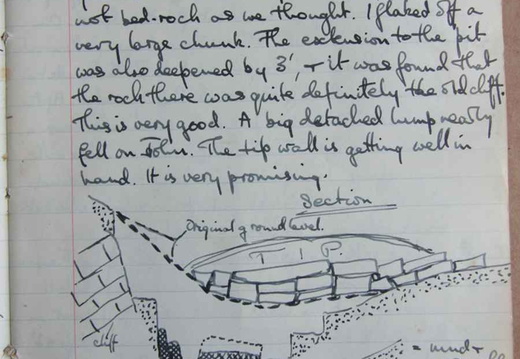 not bed-rock as we thought. I flaked off a
very large chunk. The exclusion to the pit
was also deepened by 3', + it was found that
the rock there was quite definitely the old cliff.
This is very good. A big detached lump nearly
fell on John. The tip wall is getting well in
hand. It is very promising.
Section
Original ground level.
TIP.
cliff
= mud +